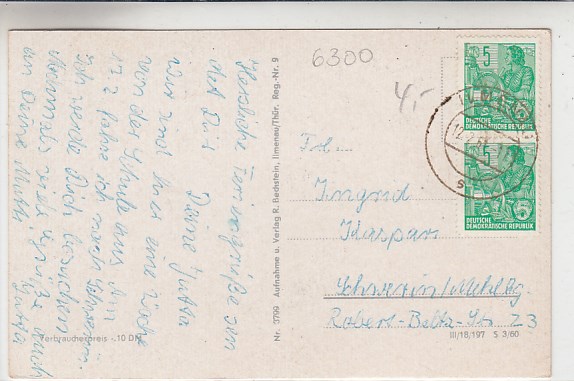 Herzliche Feriengrüße sen
det Dir Deine Jutta
Wir sind hier eine Woche
von der Schule aus. Am
17.7. fahre ich nach Schwerin.
Ich werde Dich besuchen.
Nochmals viele Grüße auch
an Deine Mutti. Jutta
Verbraucherpreis -.10 DM
Nr. 3799 Aufnahme u. Verlag R. Bechstein, Ilmenau/Thür. Reg.-Nr. 9
6300
4,-
5
DEUTSCHE
DEMOKRATISCHE REPUBLIK
5
DEUTSCHE
DEMOKRATISCHE REPUBLIK
Frl.
Ingrid
Kaspar
Schwerin/Mecklbg
Robert-Beltz-Str 23
III/18/197 S 3/60